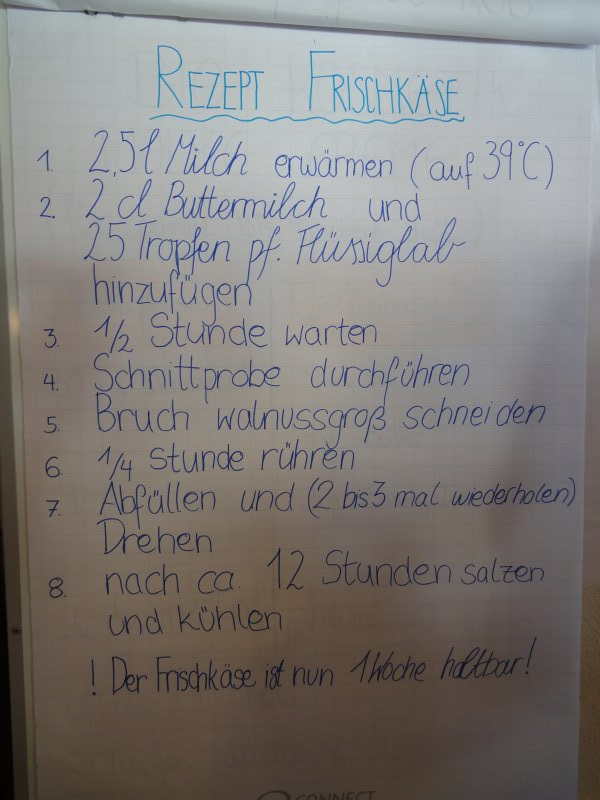 REZEPT FRISCHKÄSE
1. 2,5l Milch erwärmen (auf 39°C)
2. 2 cl Buttermilch und
25 Tropfen pf. Flüssiglab
hinzufügen
3. 1/2 Stunde warten
4. Schnittprobe durchführen
5. Bruch walnussgroß schneiden
6. 1/4 Stunde rühren
7. Abfüllen und (2 bis 3 mal wiederholen)
Drehen
8. nach ca. 12 Stunden salzen
und kühlen
! Der Frischkäse ist nun 1 Woche haltbar!
CONNECT